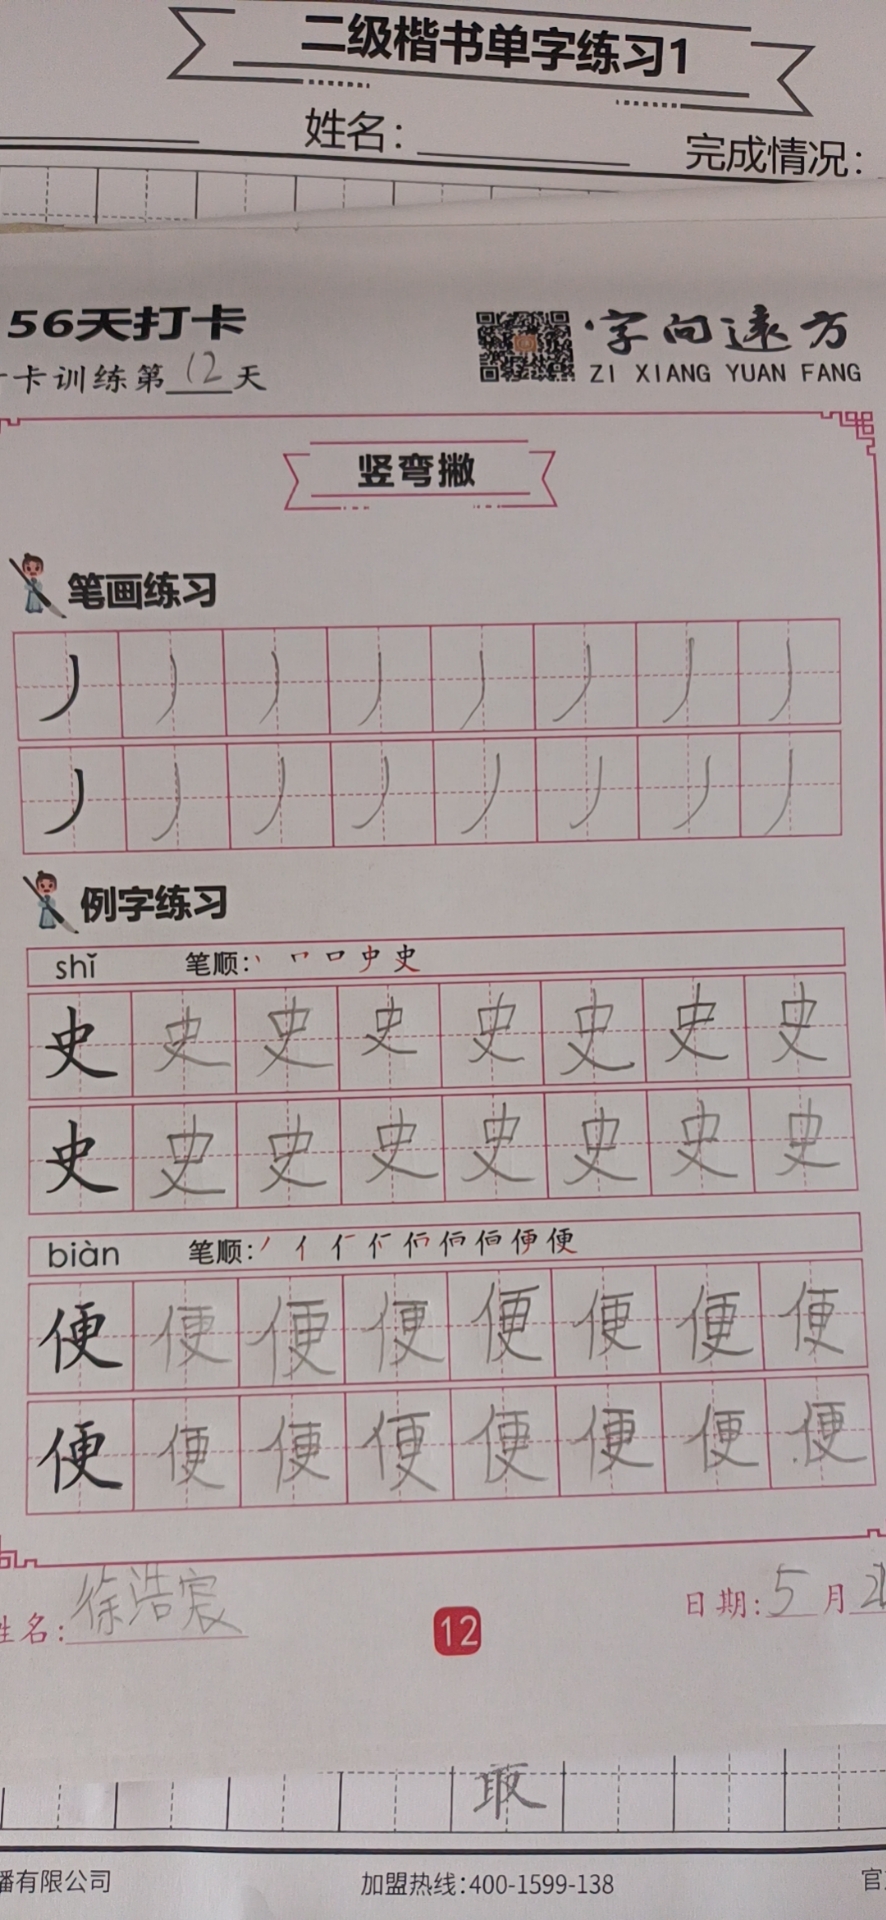 二级楷书单字练习1
姓名：
完成情况：
56天打卡
卡训练第12天
字向远方
ZI XIANG YUAN FANG
竖弯撇
笔画练习
丿 丿 丿 丿 丿 丿 丿 丿
丿 丿 丿 丿 丿 丿 丿 丿
例字练习
shǐ 笔顺：丶 史
史 史 史 史 史 史 史 史
史 史 史 史 史 史 史 史
biàn 笔顺：丿 亻 便
便 便 便 便 便 便 便 便
便 便 便 便 便 便 便 便
姓名：徐浩宸
12
日期：5月
取
播有限公司
加盟热线：400-1599-138
官